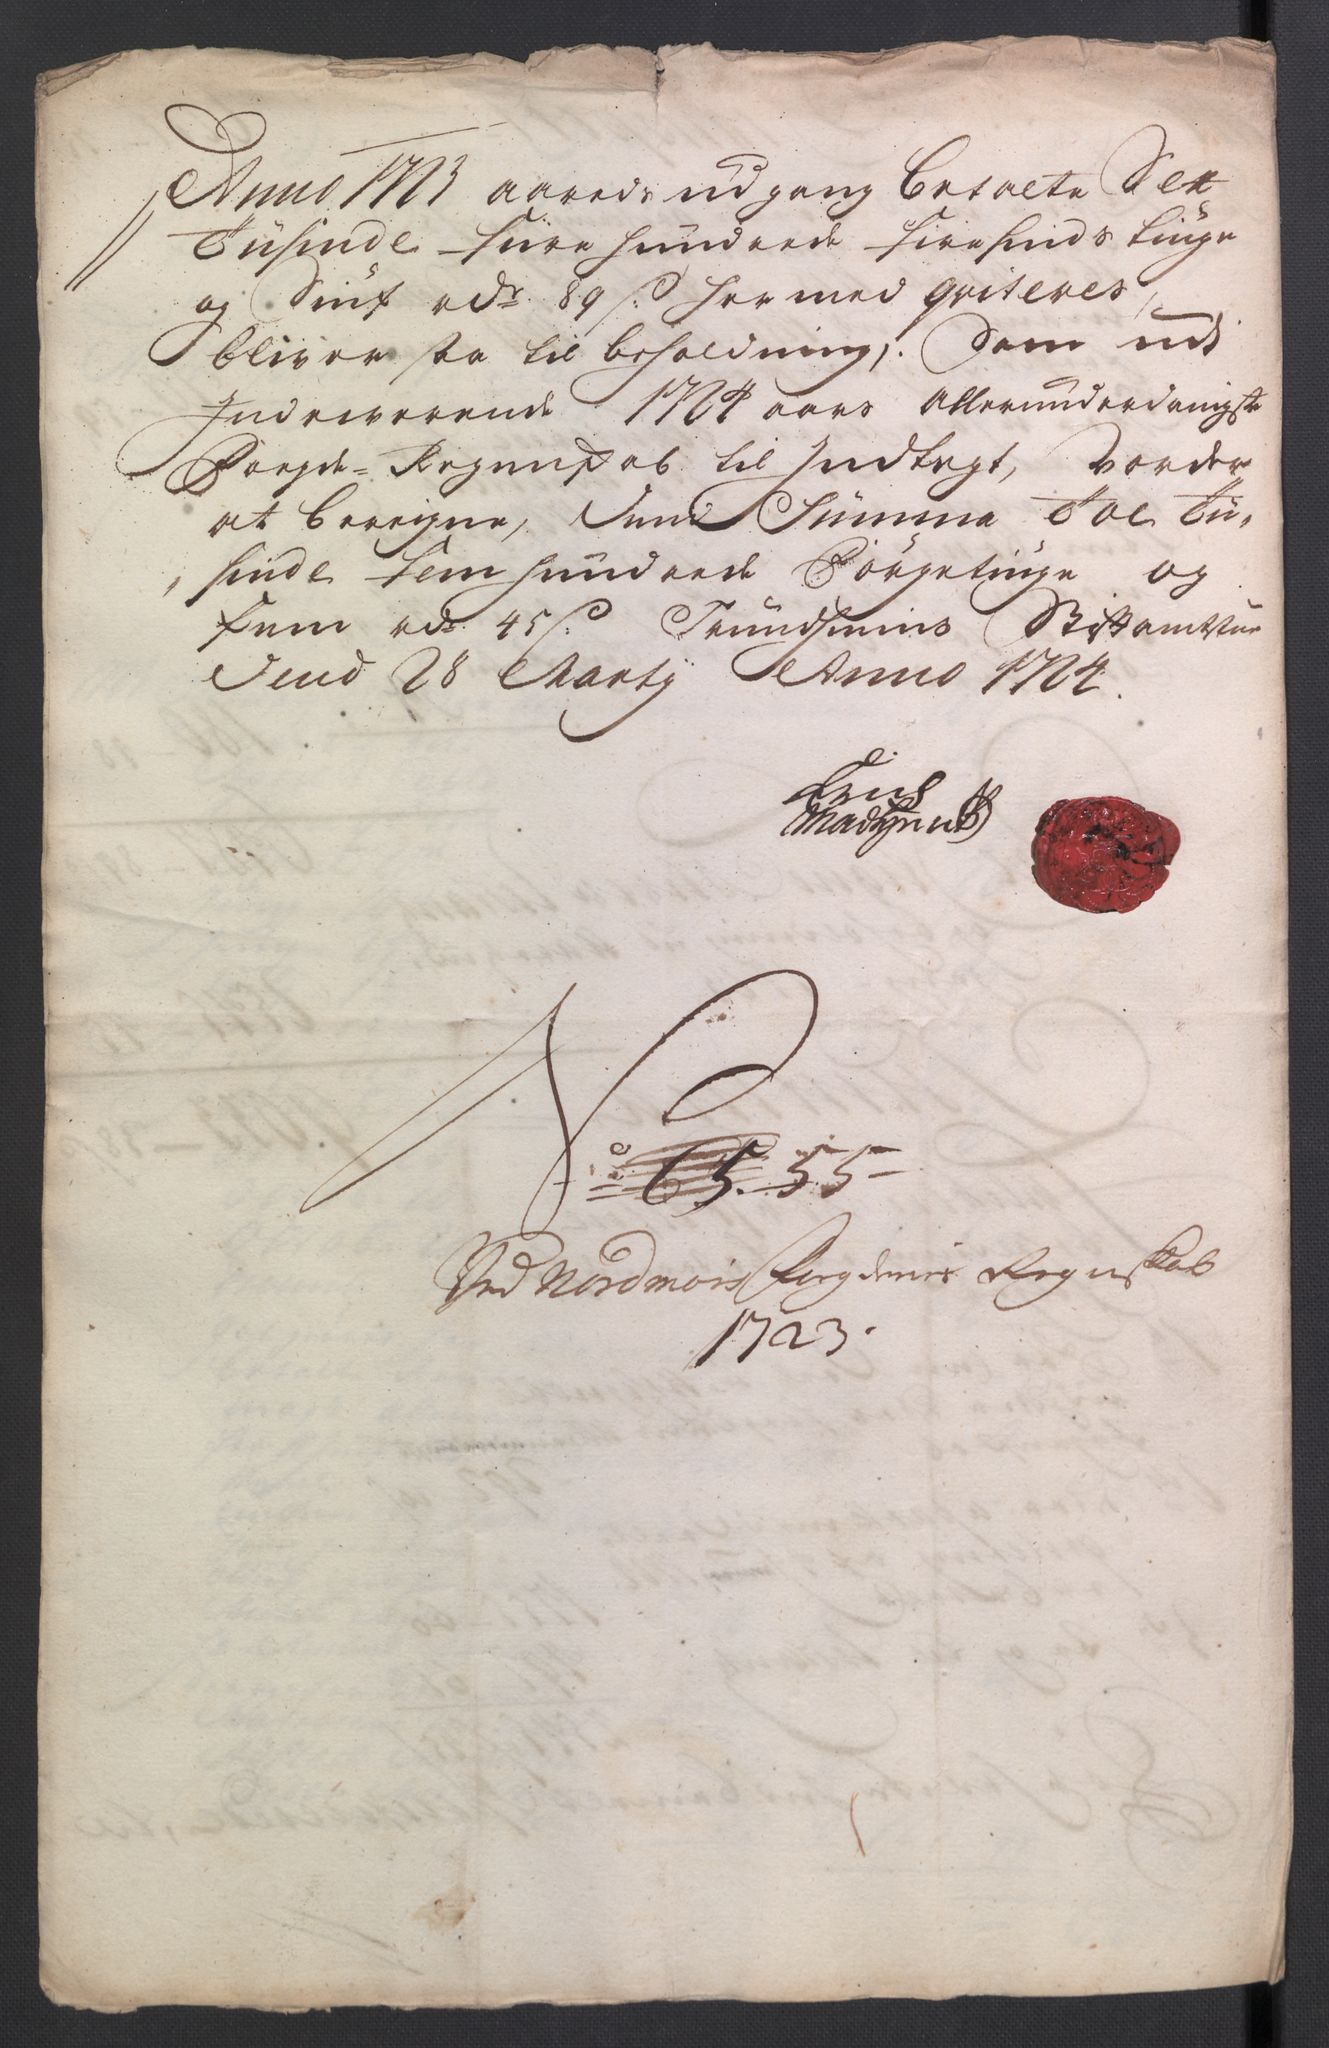 Anno 1723 aareds udgang betalte Sex
Tusinde fiire hundrede fiiresinds tiuge
og Siuf rdr 89 s: hermed qviteres,
bliver saa til beholdning, Som udi
Indeverende 1724 aars allerunderdanigste
Foegde-Regenskab til Indtegt, vorder
at beregne, dend Summa Toe Tu-
sinde fem hundrede Förgetiuge og
fem rdr 45 s: Trundhiems Stiftamtstue
Dend 28 Marty Anno 1724.
Erich
No 65. 55
Ved Nordmörs fogderies Regenskab
1723.